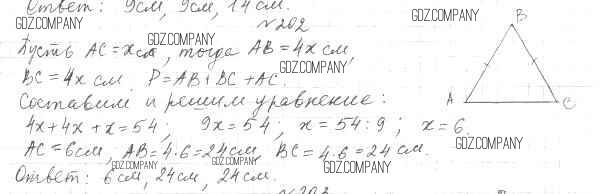 Ответ: 9см, 9см, 14см.
GDZ.COMPANY
GDZ.COMPANY
№202
GDZ.COMPANY
Пусть AC = x см, тогда AB = 4x см,
BC = 4x см. P = AB + BC + AC.
GDZ.COMPANY
Составим и решим уравнение:
4x + 4x + x = 54; 9x = 54; x = 54 : 9; x = 6.
AC = 6см, AB = 4·6 = 24см BC = 4·6 = 24 см.
GDZ.COMPANY
GDZ.COMPANY
GDZ.COMPANY
GDZ.COMPANY
Ответ: 6см, 24см, 24см.
№203
B
A
C